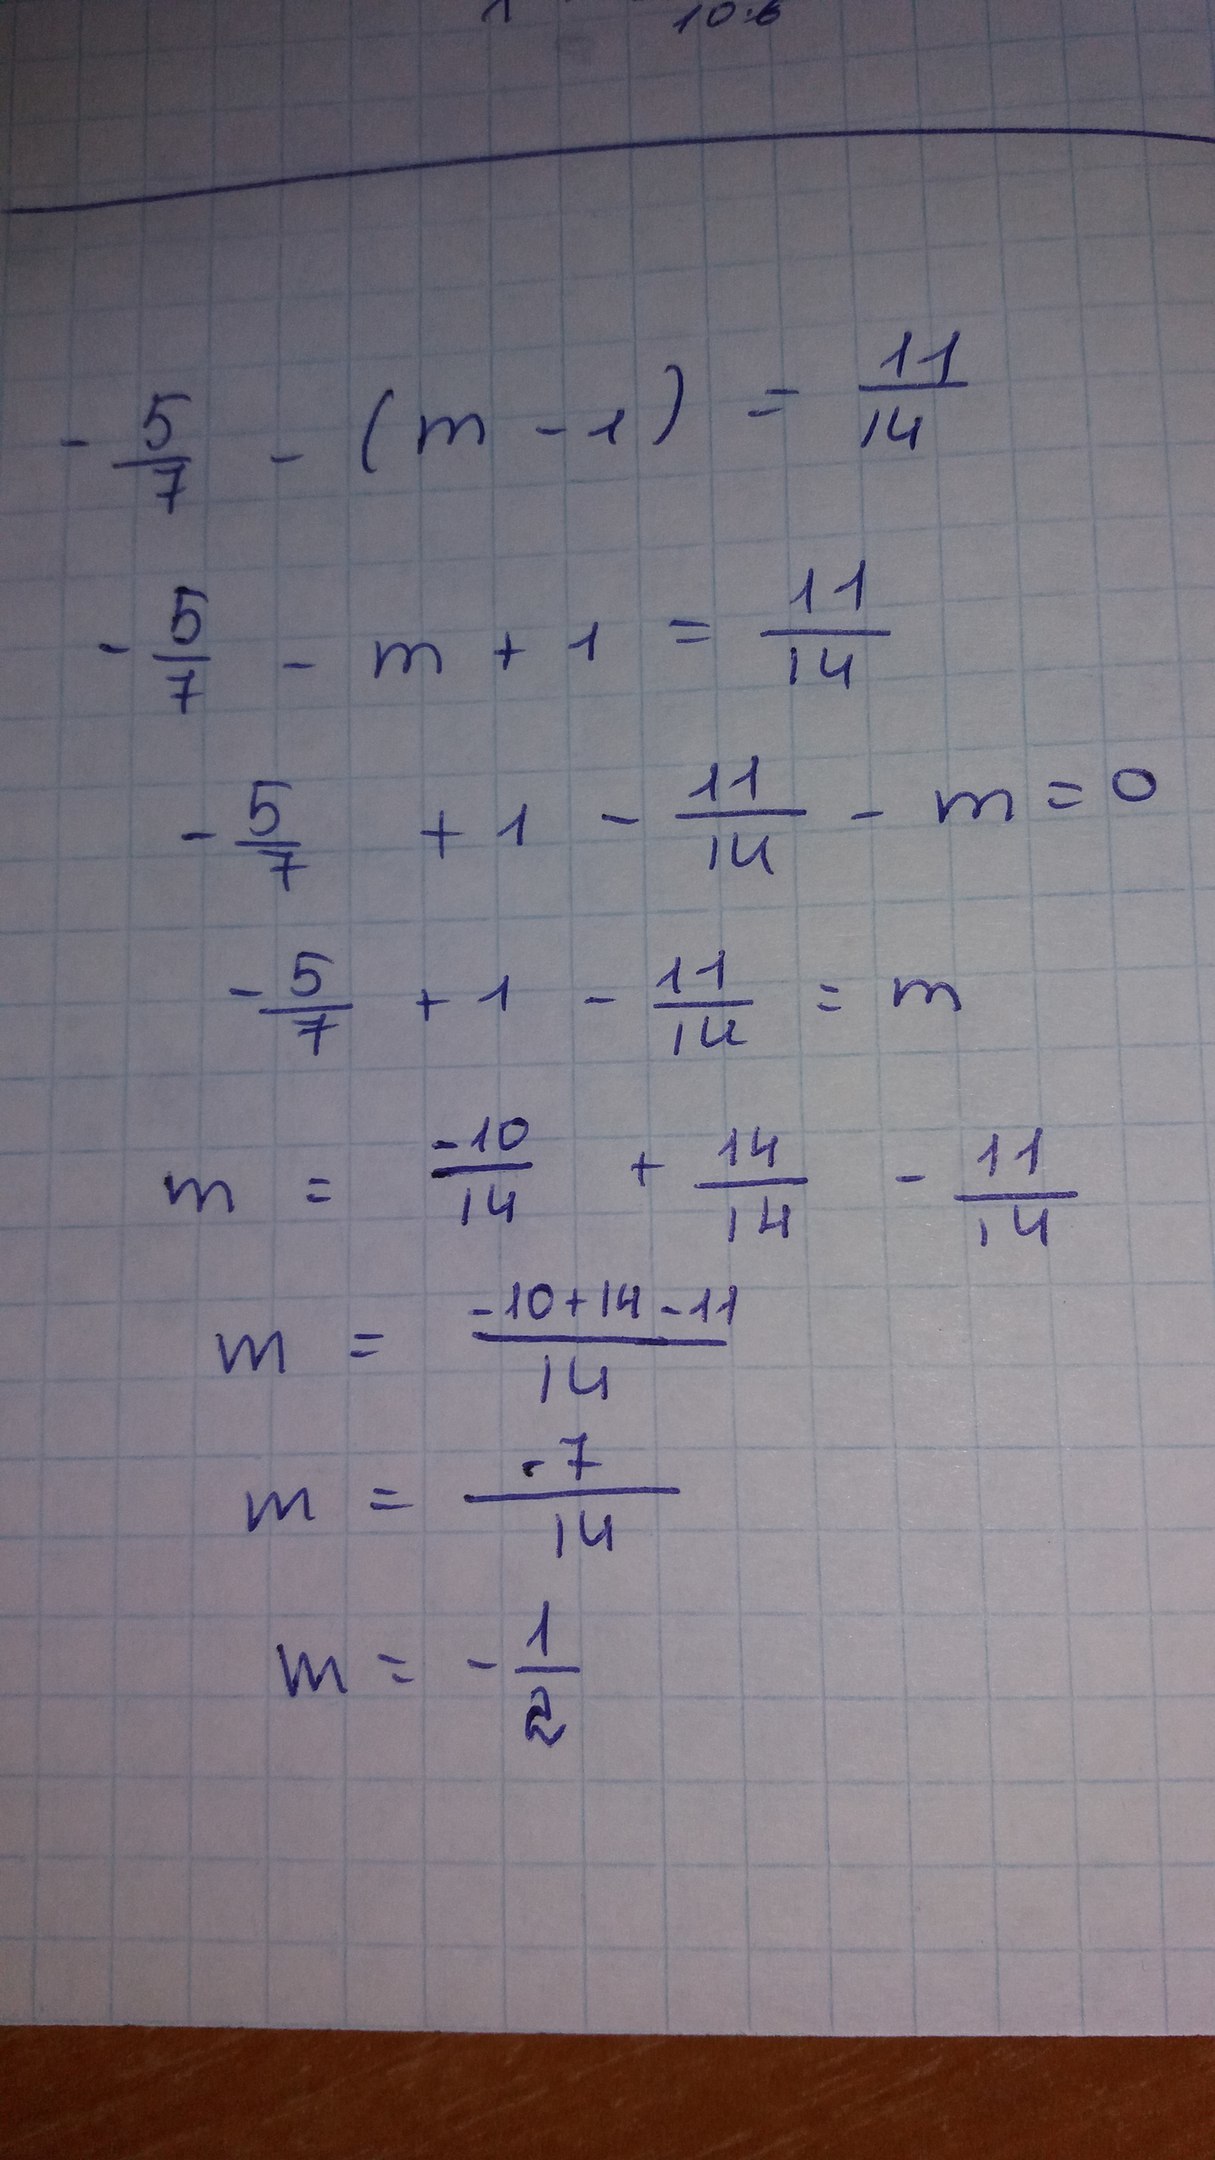 10.6
- 5/7 - (m - 1) = 11/14
- 5/7 - m + 1 = 11/14
- 5/7 + 1 - 11/14 - m = 0
- 5/7 + 1 - 11/14 = m
m = -10/14 + 14/14 - 11/14
m = (-10+14-11)/14
m = -7/14
m = - 1/2